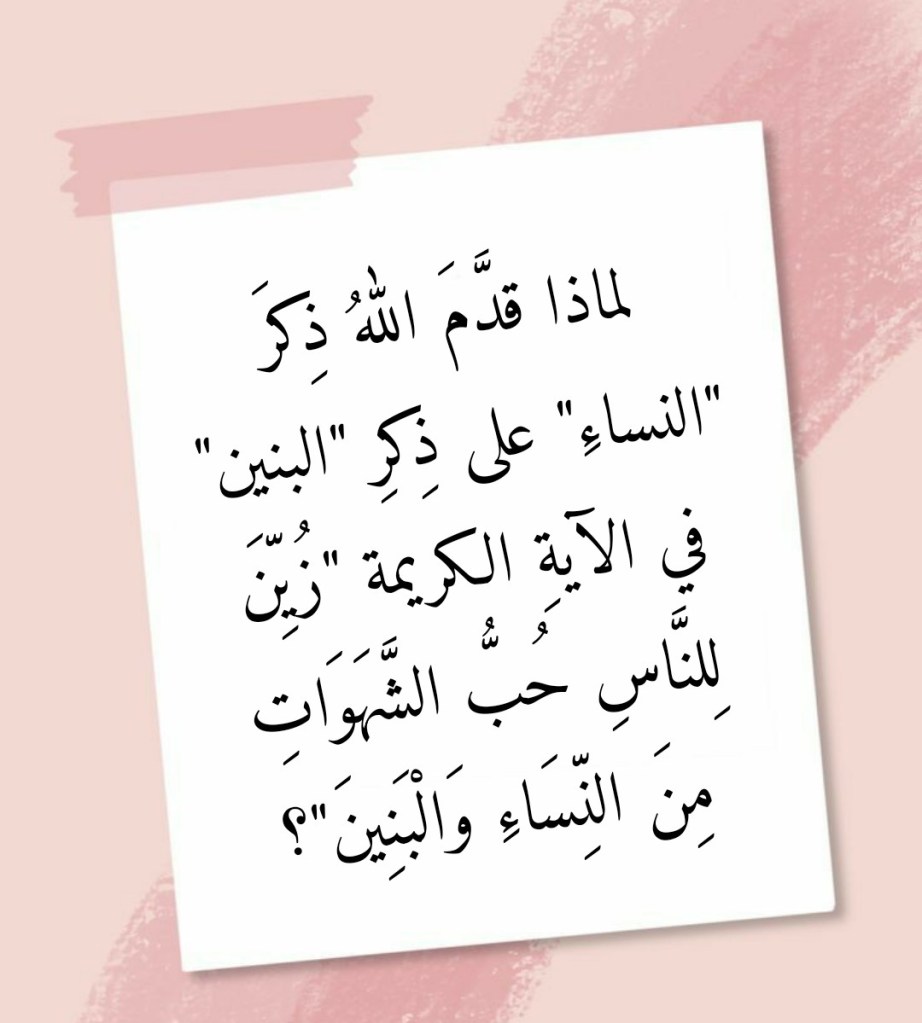 لماذا قدَّمَ اللهُ ذِكرَ
"النساءِ" على ذِكرِ "البنين"
في الآيةِ الكريمة "زُيِّنَ
لِلنَّاسِ حُبُّ الشَّهَوَاتِ
مِنَ النِّسَاءِ وَالْبَنِينَ"؟